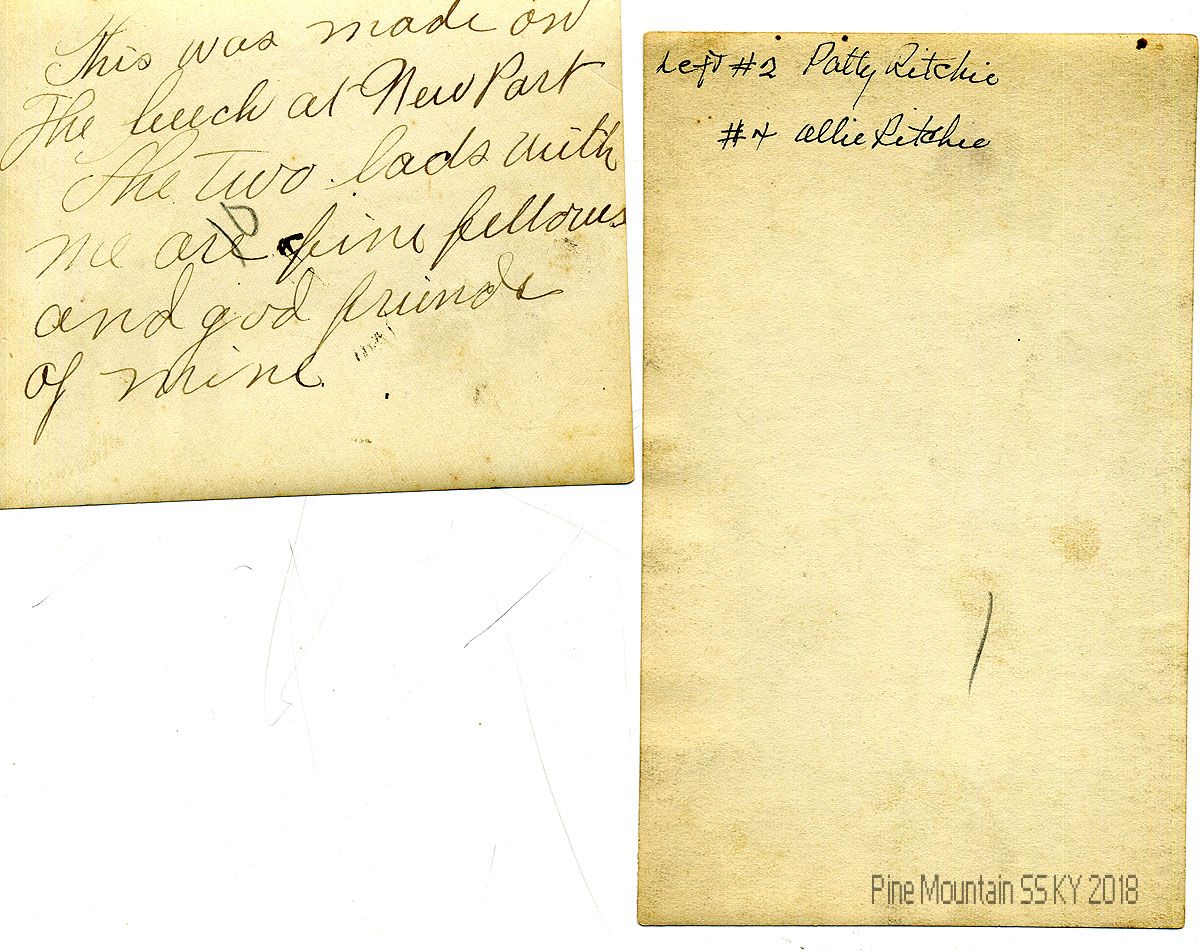 This was made on
The beech at New Port
The two lads with
me are fine fellows
and god friends
of mine.
10
Left #2 Patty Ritchie
#4 Allie Ritchie
1
Pine Mountain SS KY 2018